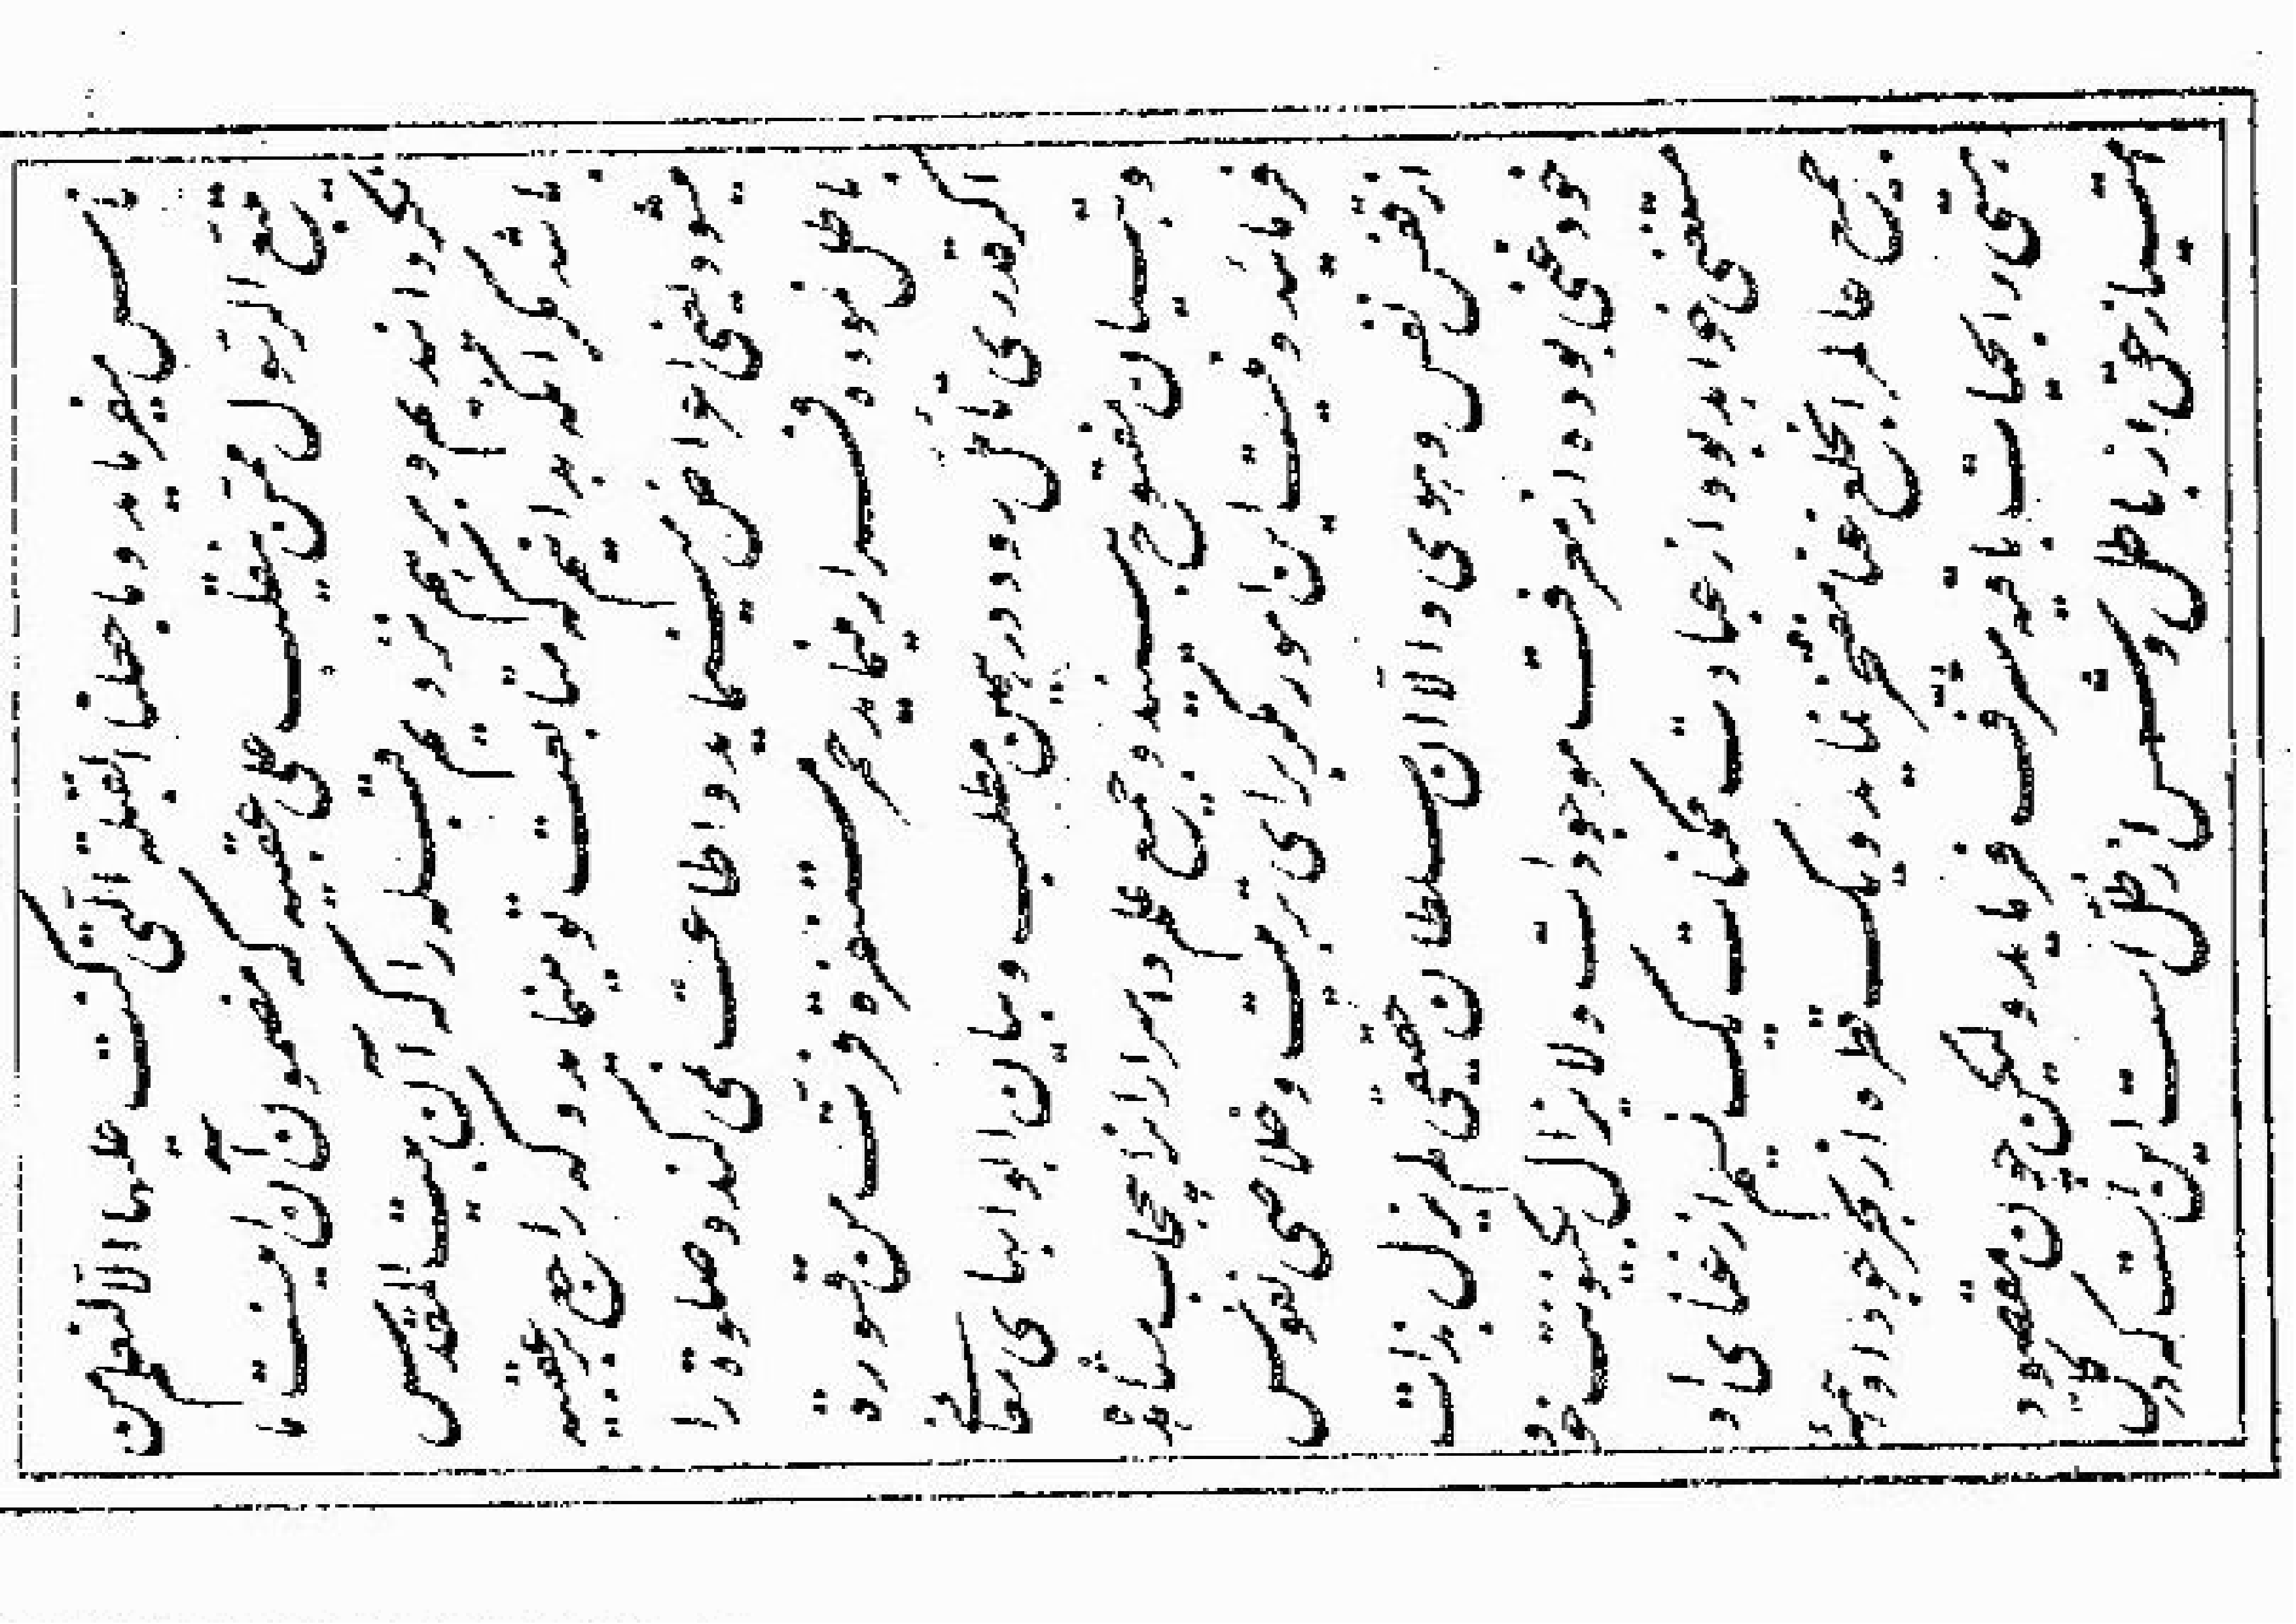 پس میفرماید و ما جعلنا القبلة التی کنت علیها الا لنعلم من
یتبع الرسول ممن ینقلب علی عقبیه که مضمون آن اینست ما
نگردانیدیم و برهم نزدیم قبله را که آن بیت المقدس
باشد مگر آنکه بدانیم که متابعت تو مینماید و که راجع بر عقبیه
میشود یعنی اعراض مینماید و اطاعت نمیکند و صلوة را
باطل نموده فرار مینماید حمر مستنفرة فرت من قسورة
اگر قدری تأمل رود در همین مطلب و بیان ابوابهای معانی
و تبیان مفتوح بیند و جمیع علم و اسرار را بیحجاب مشاهده
فرمائید و نیست این امور مگر برای تربیت و خلاصی نفوس
از قفس نفس و هوی والا آن سلطان حقیقی لم یزل بذات
خود غنی بوده از معرفت موجودات و لا یزال بکینونت خود
مستغنی خواهد بود از عبادت ممکنات یک نسیم از غنای او
جمیع عالم را بخلعت غنا مفتخر نماید و یک قطره از بحر جود او همه
هستی را بحیات باقیه مشرف فرماید ولیکن چون مقصود
امتیاز حق از باطل و شمس از ظل است اینست که در کل